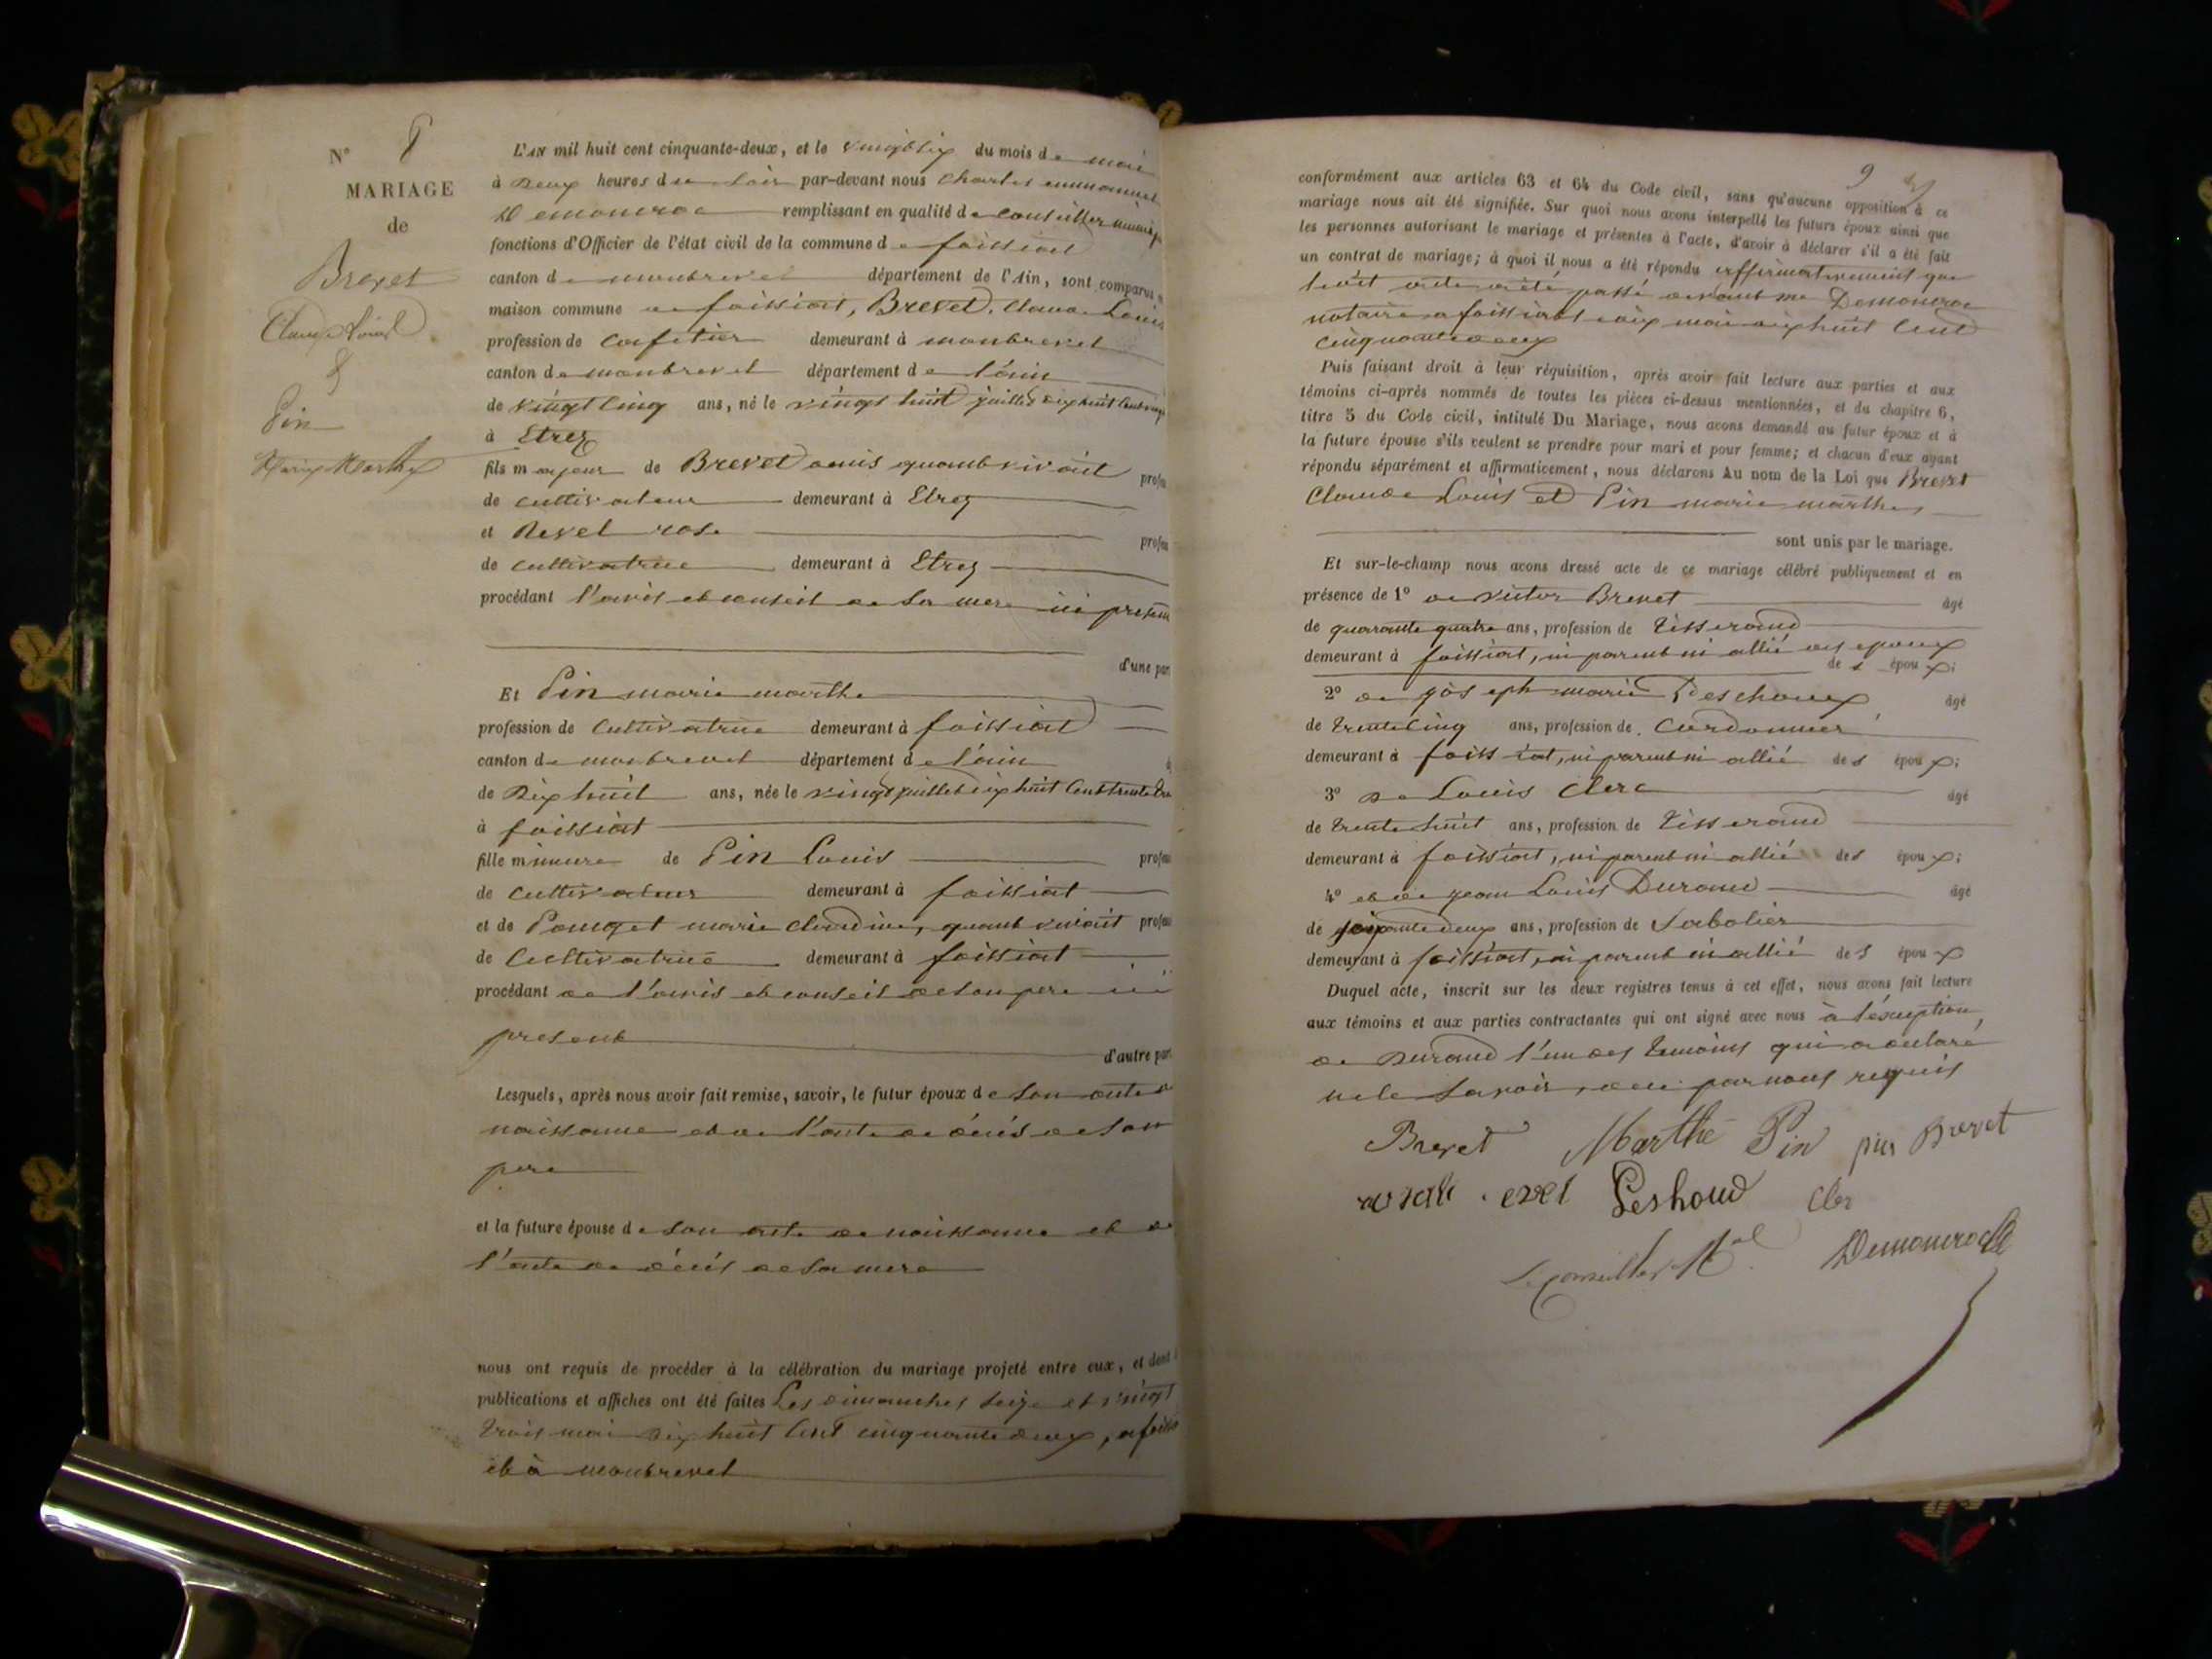 N° 8
MARIAGE
de
Brevet
Claude Louis
&
Pin
Marie Marthe
L'AN mil huit cent cinquante-deux, et le vingt six du mois de mai
à deux heures du soir par-devant nous Charles emmanuel
Demoncroc remplissant en qualité de conseiller
fonctions d'Officier de l'état civil de la commune de foissiat
canton de montrevel département de l'Ain, sont comparus
maison commune de foissiat, Brevet, Claude Louis
profession de cafetier demeurant à montrevel
canton de montrevel département de l'ain
de vingt cinq ans, né le vingt huit juillet dix huit cent
à Etrez
fils majeur de Brevet denis quant vivait
de cultivateur demeurant à Etrez
et Revel rose
de cultivatrice demeurant à Etrez
procédant l'avis et conseil de sa mere ici
d'une par
Et Pin marie marthe
profession de cultivatrice demeurant à foissiat
canton de montrevel département de l'ain
de dix huit ans, née le vingt juillet dix huit cent trente
à foissiat
fille mineure de Pin Louis
de cultivateur demeurant à foissiat
et de Pouget marie claudine, quant vivait
de cultivatrice demeurant à foissiat
procédant de l'avis et conseil de son pere ici
present
d'autre par
Lesquels, après nous avoir fait remise, savoir, le futur époux de son acte d
naissance et de l'acte de décés de son
pere
et la future épouse de son acte de naissance et de
l'acte de décés de sa mere
nous ont requis de procéder à la célébration du mariage projeté entre eux, et dont
publications et affiches ont été faites Les dimanches seize et vingt
trois mai dix huit cent cinquante deux, a
et à montrevel
9
conformément aux articles 63 et 64 du Code civil, sans qu'aucune opposition à ce
mariage nous ait été signifiée. Sur quoi nous avons interpellé les futurs époux ainsi que
les personnes autorisant le mariage et présentes à l'acte, d'avoir à déclarer s'il a été fait
un contrat de mariage; à quoi il nous a été répondu affirmativement que
ledit acte a été passé devant me Demoncroc
notaire a foissiat mai dix huit cent
cinquante deux
Puis faisant droit à leur réquisition, après avoir fait lecture aux parties et aux
témoins ci-après nommés de toutes les pièces ci-dessus mentionnées, et du chapitre 6,
titre 5 du Code civil, intitulé Du Mariage, nous avons demandé au futur époux et à
la future épouse s'ils veulent se prendre pour mari et pour femme; et chacun d'eux ayant
répondu séparément et affirmativement, nous déclarons Au nom de la Loi que Brevet
Claude Louis et Pin marie marthe
sont unis par le mariage.
Et sur-le-champ nous avons dressé acte de ce mariage célébré publiquement et en
présence de 1° de victor Brevet âgé
de quarante quatre ans, profession de tisserand
demeurant à foissiat, ni parent ni allié des epoux
de s époux;
2° de joseph marie Deschoux âgé
de trente cinq ans, profession de Cordonnier
demeurant à foissiat, ni parent ni allié des époux;
3° de Louis Clerc âgé
de trente huit ans, profession de tisserand
demeurant à foissiat, ni parent ni allié des époux;
4° et de jean Louis Durand âgé
de soixante deux ans, profession de Sabotier
demeurant à foissiat, ni parent ni allié des époux
Duquel acte, inscrit sur les deux registres tenus à cet effet, nous avons fait lecture
aux témoins et aux parties contractantes qui ont signé avec nous à l'exception
de Durand l'un des temoins qui a déclaré
ne le savoir, de ce par nous requis
Brevet Marthe Pin Brevet
Clerc
Le conseiller Mal Demoncroc